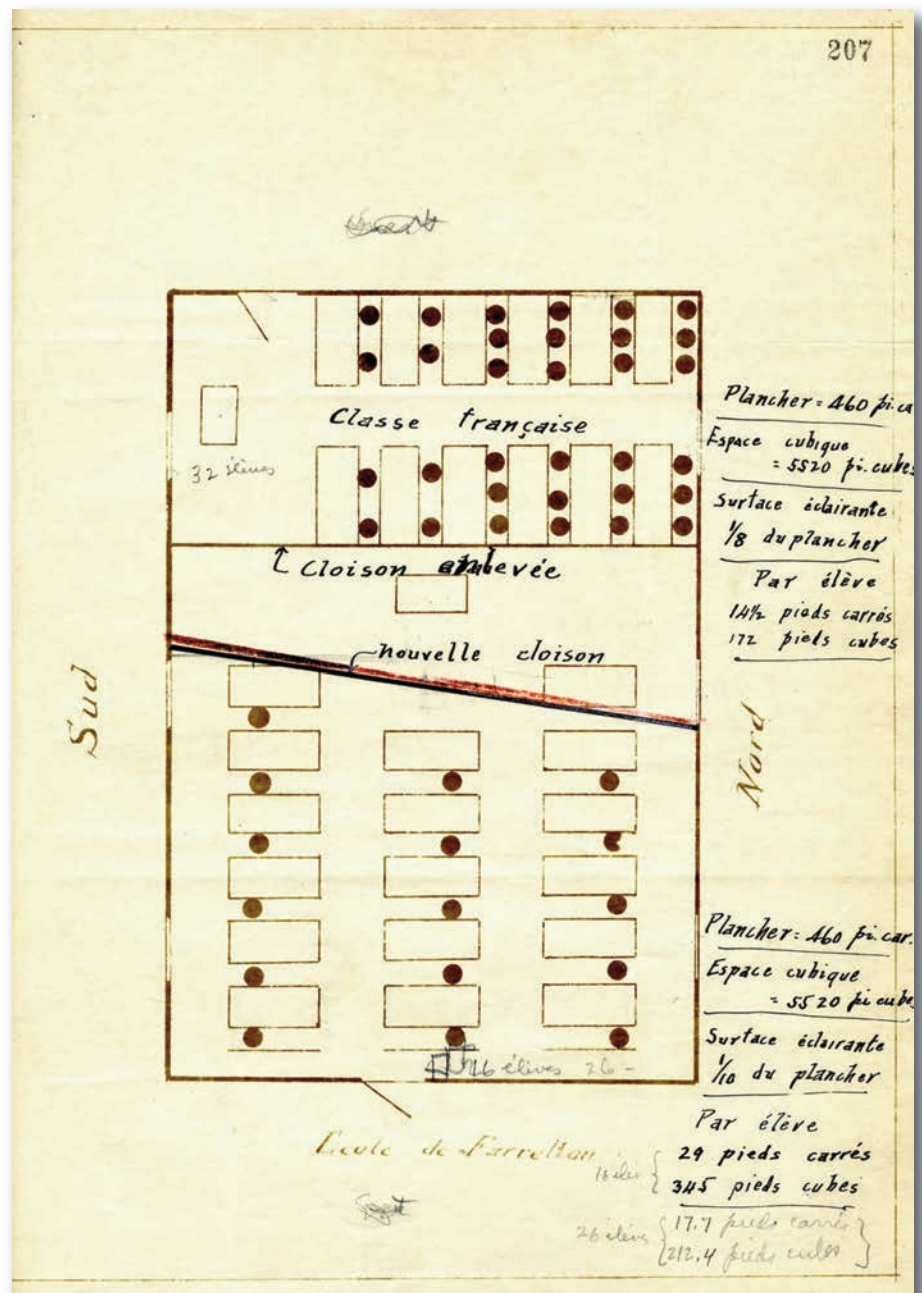 207
Classe française
32 élèves
Cloison enlevée
nouvelle cloison
Sud
Nord
Plancher = 460 pi.ca
Espace cubique
= 5520 pi. cubes
Surface éclairante
1/8 du plancher
Par élève
14½ pieds carrés
172 pieds cubes
Plancher = 460 pi. car.
Espace cubique
= 5520 pi cubes
Surface éclairante
1/10 du plancher
Par élève
29 pieds carrés
345 pieds cubes
16 élèves 26 -
Ecole de Farrelton
26 élèves
17.7 pieds carrés
212.4 pieds cubes